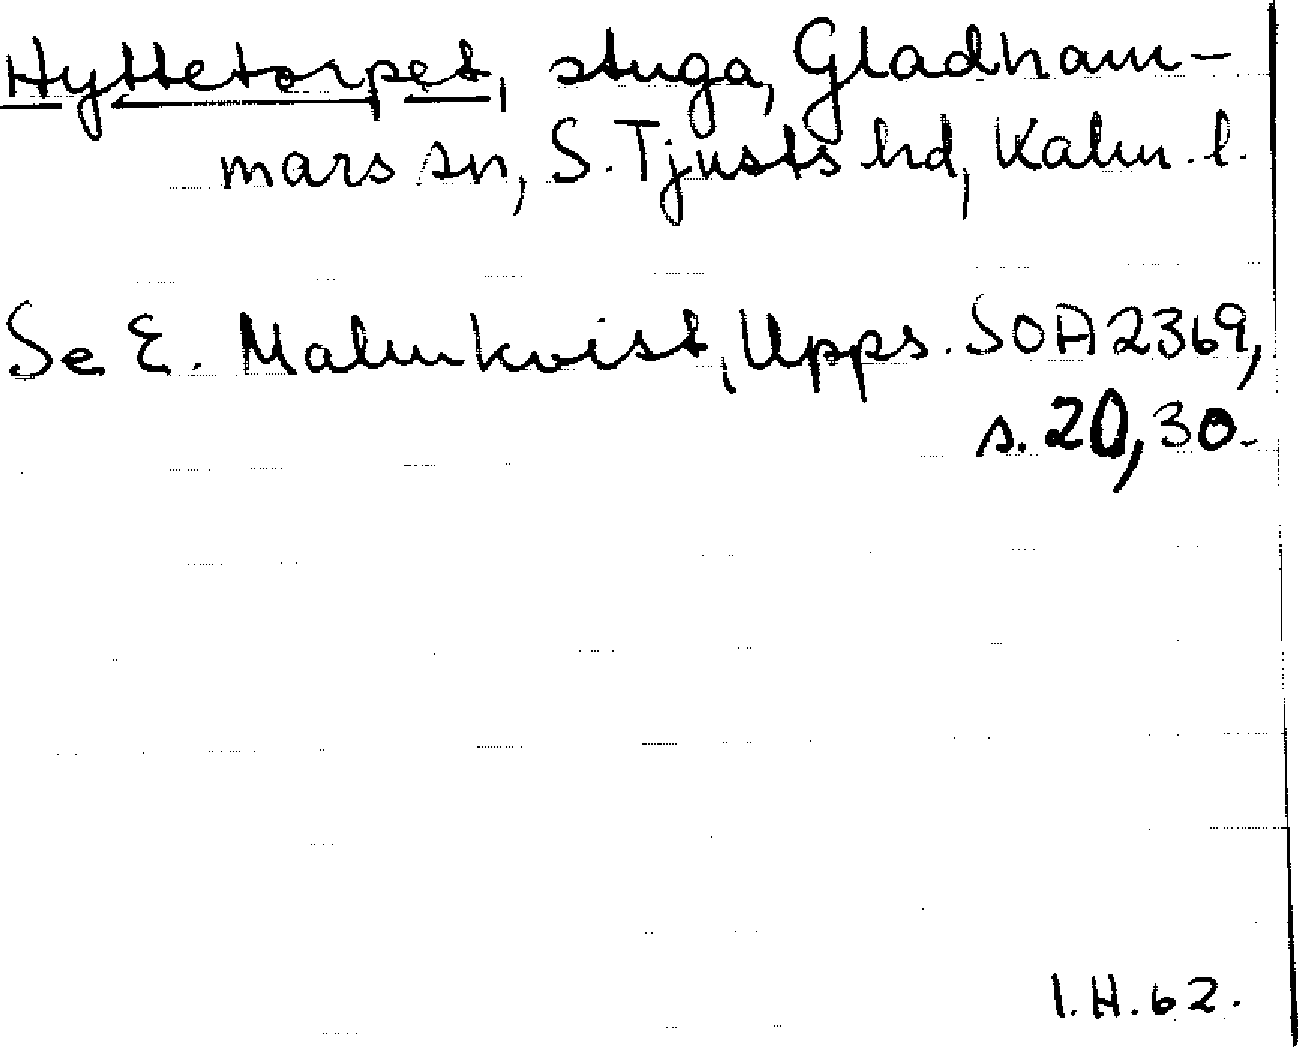 Hyttetorpet, stuga, Gladham-
mars sn, S. Tjusts hd, Kalm. l.
Se E. Malmkvist, Upps. SOA 2369,
s. 20, 30.
I.H. 62.